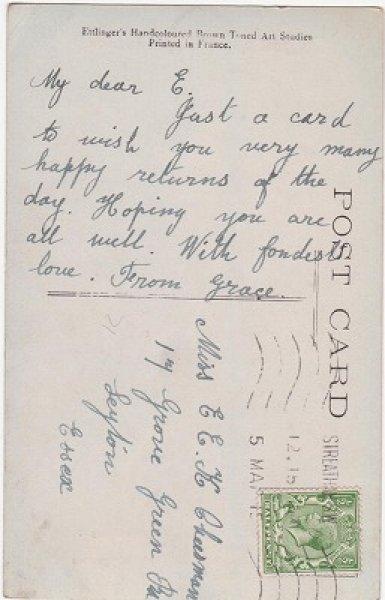 Ettlinger's Handcoloured Brown Toned Art Studies
Printed in France.
My dear E.
Just a card
to wish you very many
happy returns of the
day. Hoping you are
all well. With fondest
love. From Grace.
POST CARD
Miss E E. K Cheesman
17 Grove Green
Leyton
Essex
STREATHAM
12.15
5 MAR